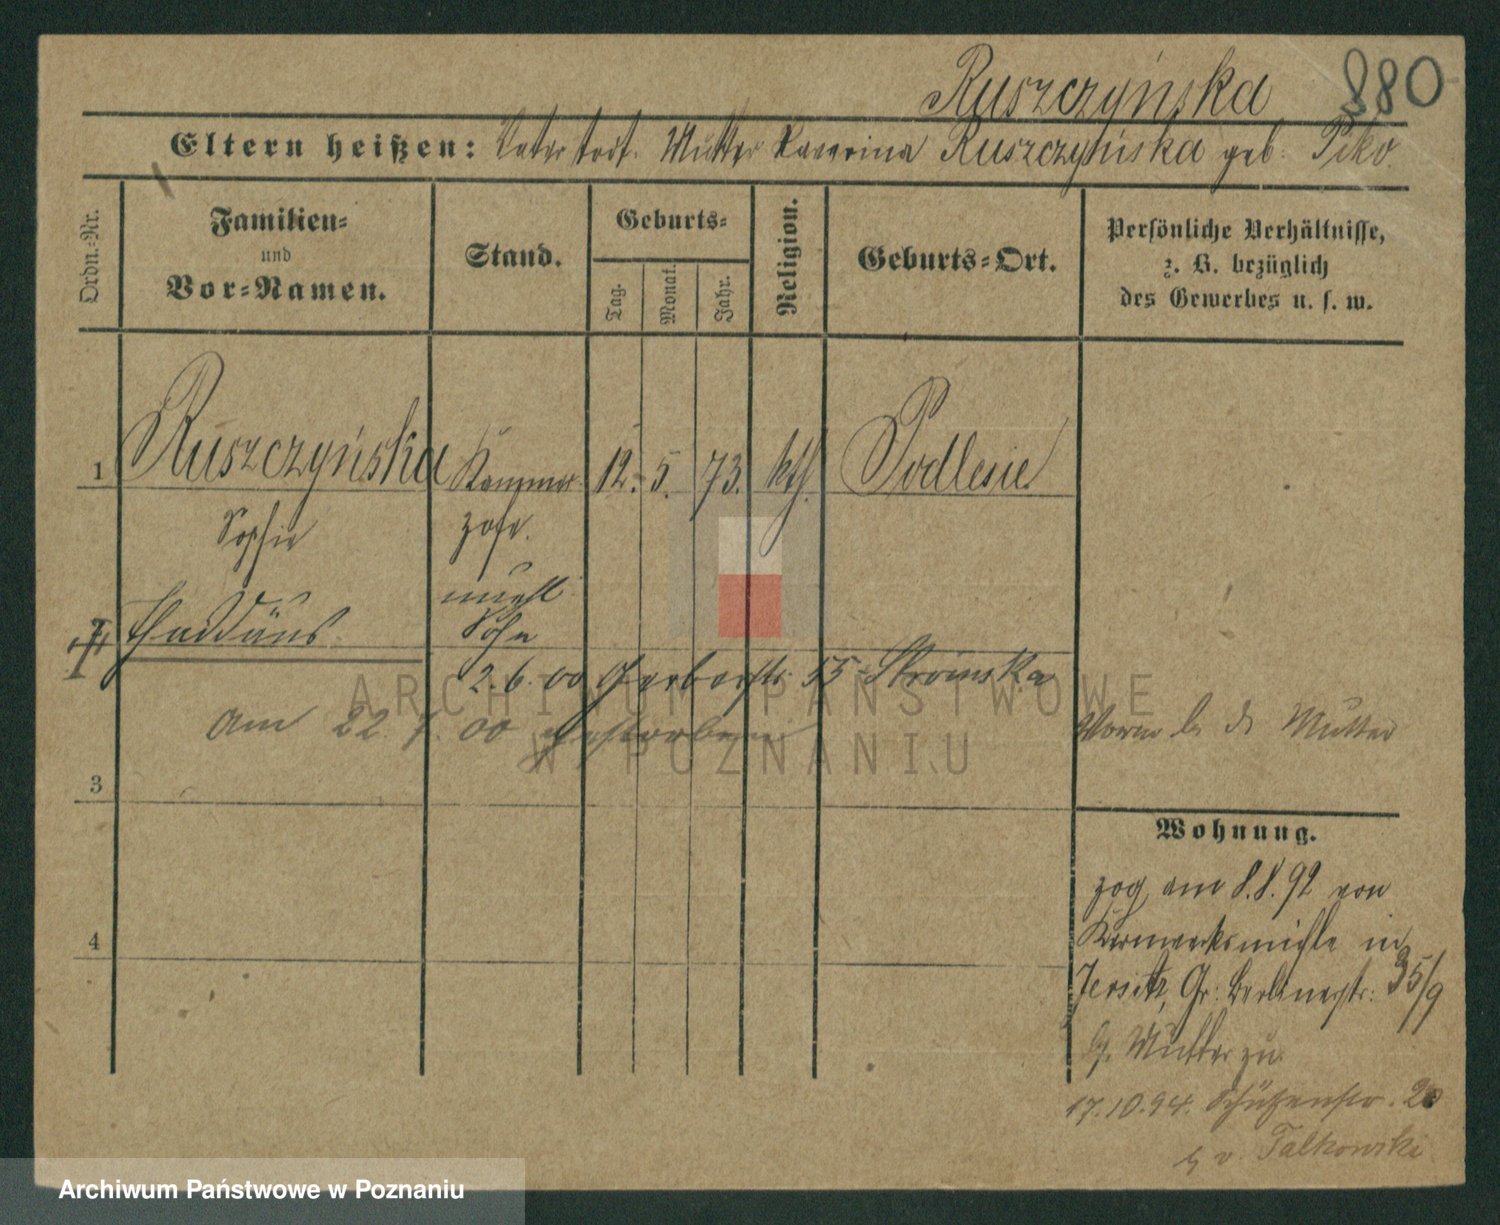 Ruszczyńska 880
Eltern heißen: Vater todt. Mutter Xaverina Ruszczyńska geb. Piko.
Ordn.-Nr.
Familien-
und
Vor-Namen.
Stand.
Geburts-
Tag.
Monat.
Jahr.
Religion.
Geburts-Ort.
Persönliche Verhältnisse,
z. B. bezüglich
des Gewerbes u. s. w.
1 Ruszczyńska Kammer 12. 5. 73. kth. Podlesie
Sophie zofe.
unehl
Thaddäus Sohn
2.6.00 Gerberstr. 55 Stroinska
am 22. 7. 00 gestorben
Worm b. d. Mutter
3
4
Wohnung.
zog am 8.8.92 von
in
Jersitz, Gr: Berlinerstr: 35/9
b. Mutter zu
17.10.94. Schützenstr. 20
b v. Talkowski
ARCHIWUM PAŃSTWOWE
W POZNANIU
Archiwum Państwowe w Poznaniu